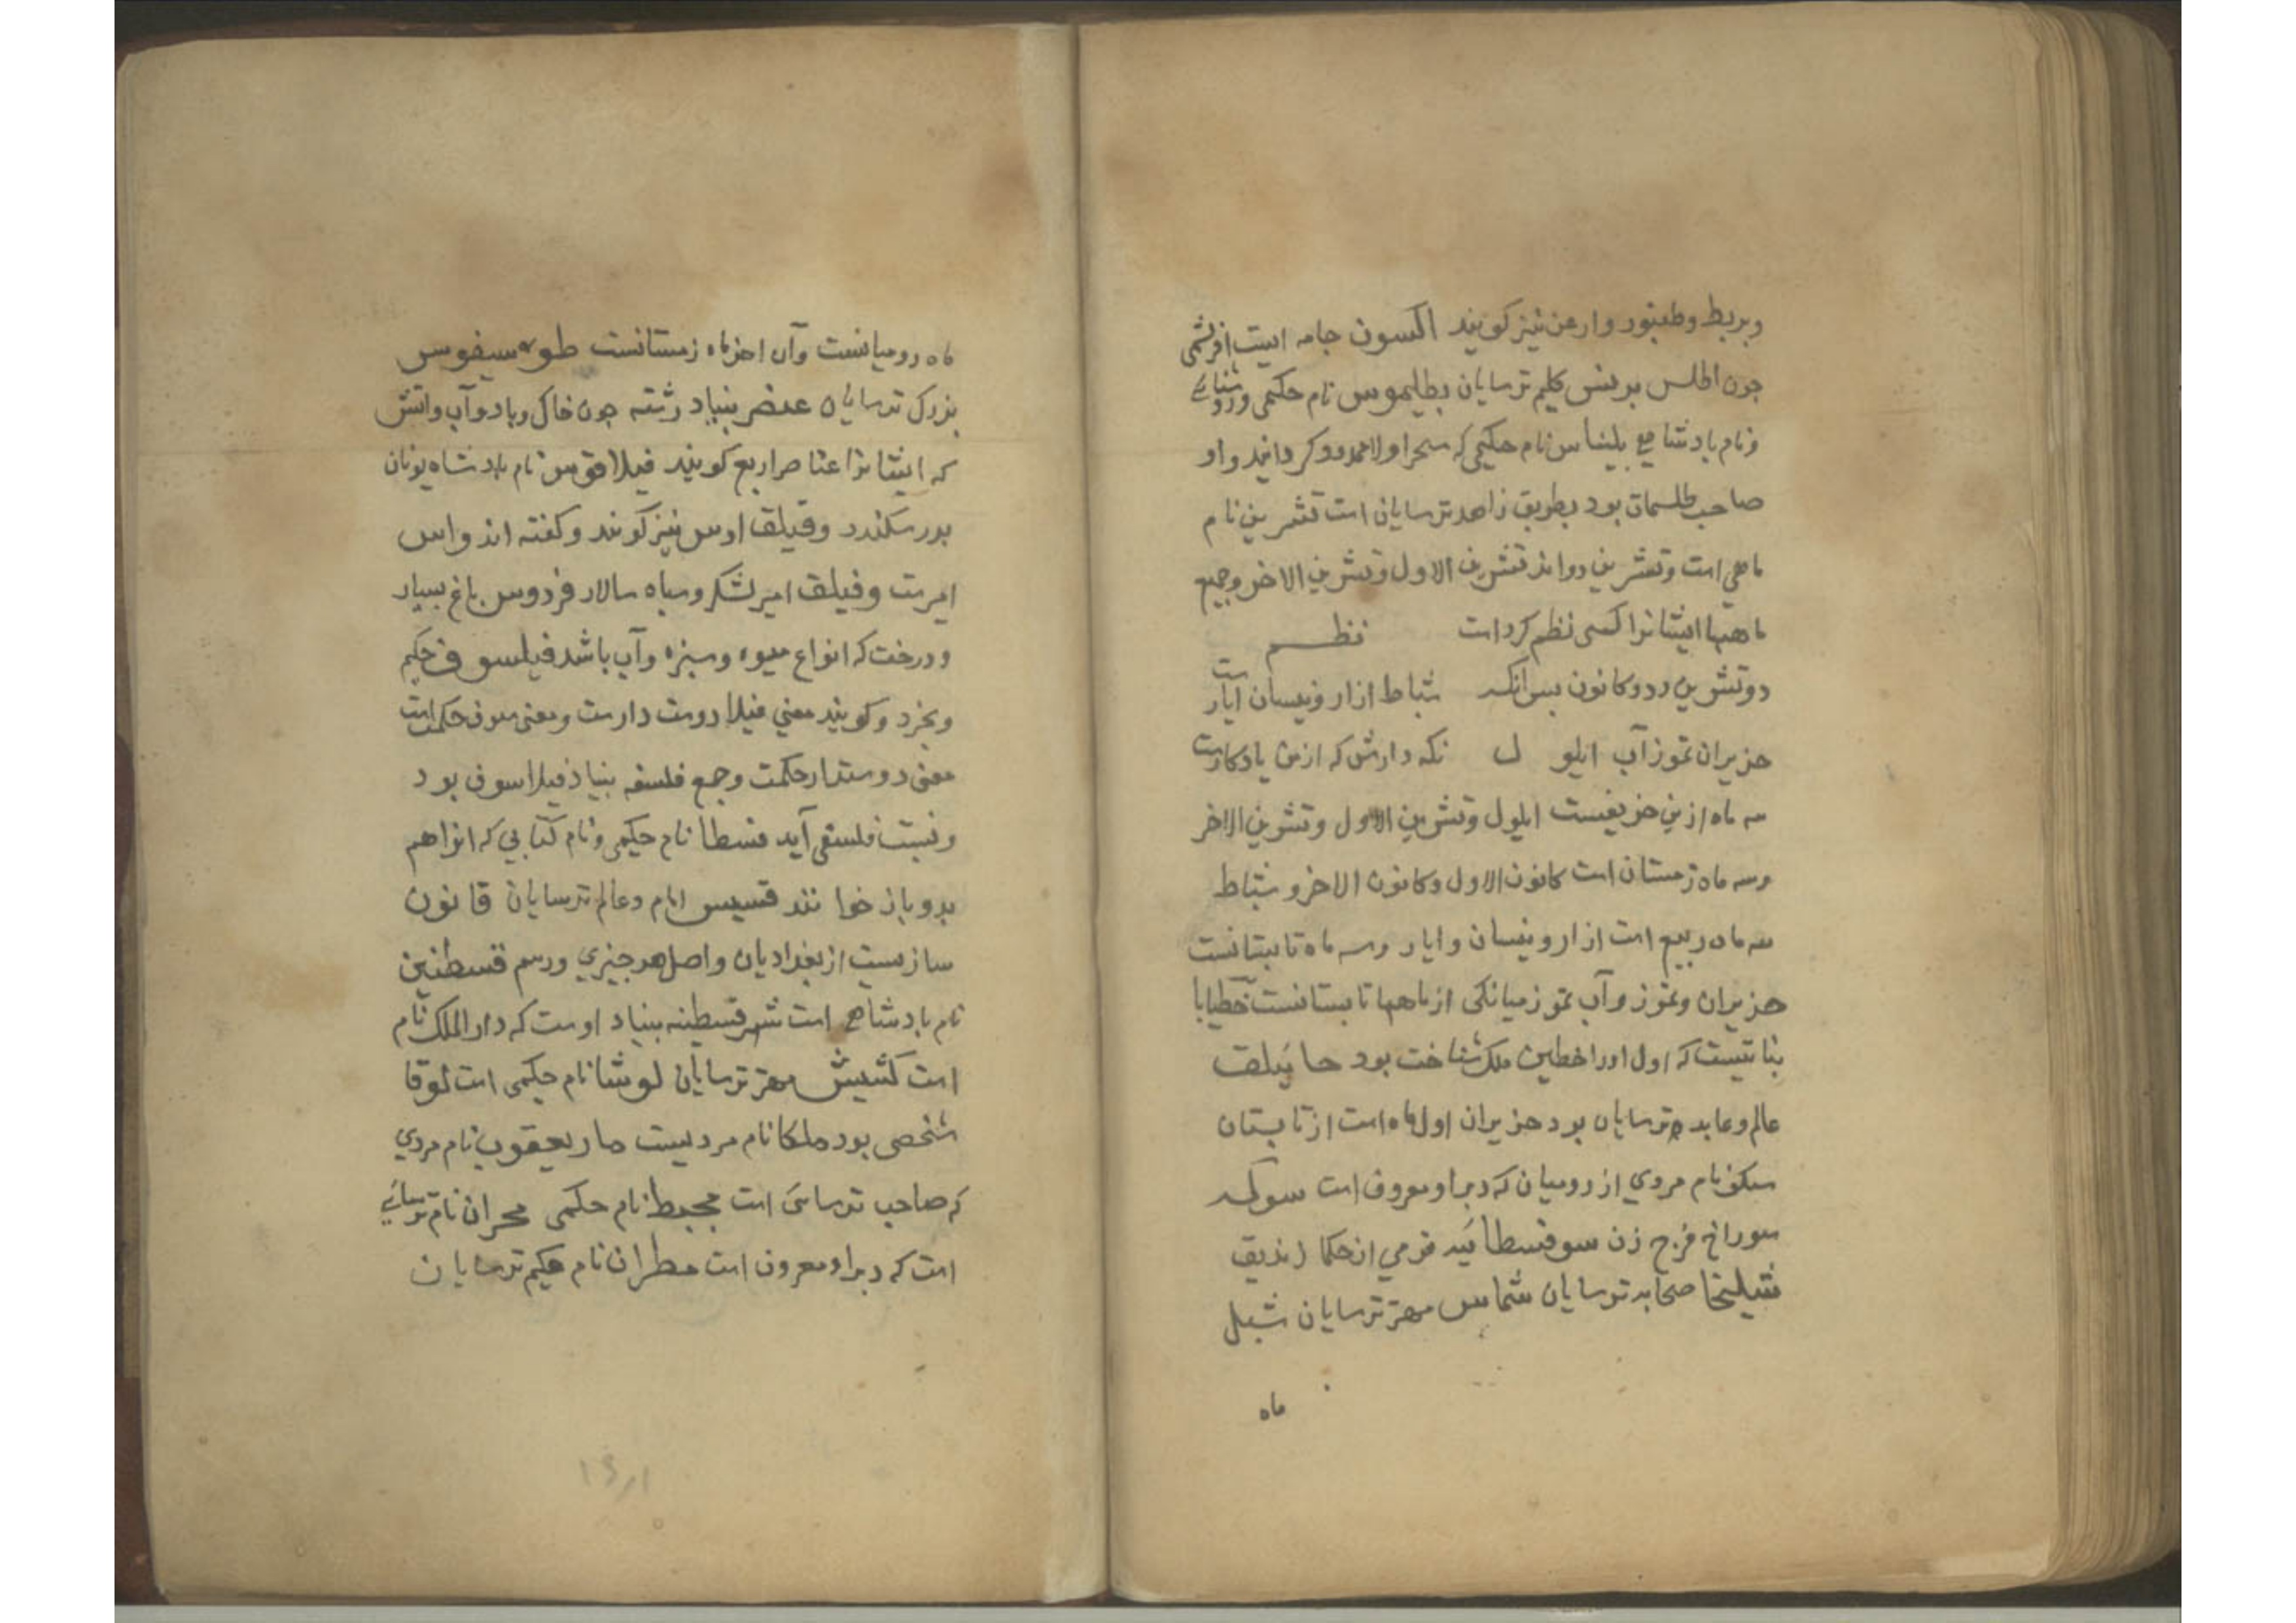 وبربط وطنبور وارغن نیز کویند اکسون جامه ایست افرشمی
جون اطلس برنس کلیم ترسایان بطلیموس نام حکمی وروشنائے
ونام بادشاهے بلیناس نام حکیمی که سحر اولا کردانید واو
صاحب طلسمات بود بطریق زاهد ترسایان است تشرین نام
ماهی است وتشرین دواند تشرین الاول وتشرین الاخر وجمیع
ماهها ایشانرا کسی نظم کرد است نظم
دوتشرین ودوکانون بس انکه شباط ازار ونیسان ایار است
حزیران تموز آب ایلو ل نکه دارش که ازمن یادکارست
سه ماه ازین خریفست ایلول وتشرین الاول وتشرین الاخر
وسه ماه زمستان است کانون الاول وکانون الاخر و شباط
سه ماه ربیع است ازار ونیسان وایار وسه ماه تابستانست
حزیران وتموز وآب تموز میانکی از ماهها تابستانست خطیابا
بناتیست که اول اورا خطین ملک شناخت بود حاثیلق
عالم وعابد ترسایان بود حزیران اول ماه است از تابستان
سکف نام مردی از رومیان که دیر او معروف است سوکه
سوراخ فرج زن سوفسطائیه قومی از حکما زندیق
شیلیخا صحابه ترسایان شماس مهتر ترسایان شبل
ماه
ماه رومیانست وآن اخر ماه زمستانست سیفوس
بزرک ترسایان عنصر بنیاد رشته جون خاک وباد وآب واتش
که ایشانرا عناصر اربع کویند فیلاقوس نام بادشاه یونان
بدر سکندر وفیلق اوس نیز کویند وکفته اند واس
امرست وفیلق امیر لشکر وسباه سالار فردوس باغ بسیار
ودرخت که انواع میوه وسبزه وآب باشد فیلسوف حکیم
وبخرد وکویند معنی فیلا دوست دارست ومعنی سوف حکمت است
معنی دوستدار حکمت وجمع فلسفه بنیاد فیلاسوف بود
ونسبت فلسفی آید قسطا نام حکیمی ونام کتابی که انرا هم
بدو باز خوانند قسیس امام وعالم ترسایان قانون
سازیست از بغدادیان واصل هر جیزی ورسم قسطنین
نام بادشاهے است شهر قسطنیه بنیاد اوست که دار الملک نام
است کشیش مهتر ترسایان لوشا نام حکیمی است لوقا
شخصی بود ملکا نام مردیست مار یعقوب نام مردی
که صاحب ترسائی است مجبط نام حکمی محران نام ترسائے
است که دیر او معروف است مطران نام حکیم ترسایان